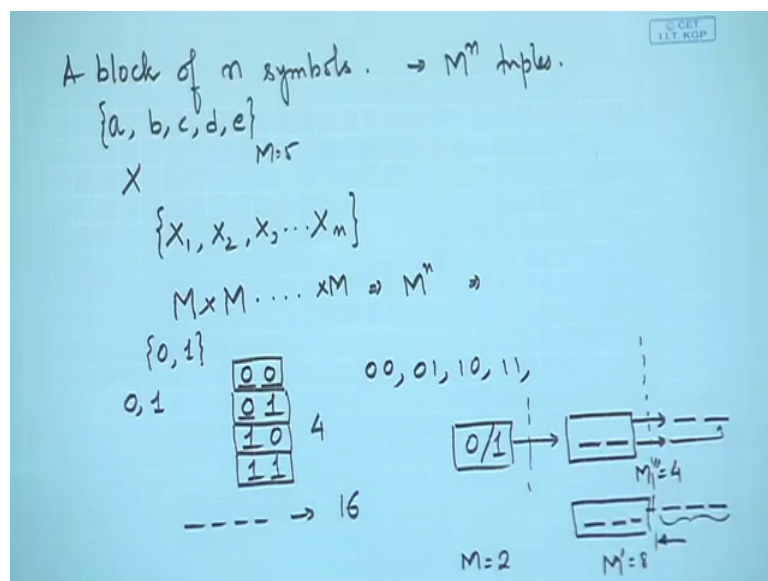 © CET
I.I.T. KGP
A block of n symbols. → Mⁿ tuples.
{a, b, c, d, e}
M=5
X
{X₁, X₂, X₃ ... Xₙ}
M×M .... ×M ⇒ Mⁿ ⇒
{0, 1}
0, 1
0 0
0 1
1 0
1 1
4
00, 01, 10, 11,
0/1
_ _ _ _ → 16
M=2
M'=8